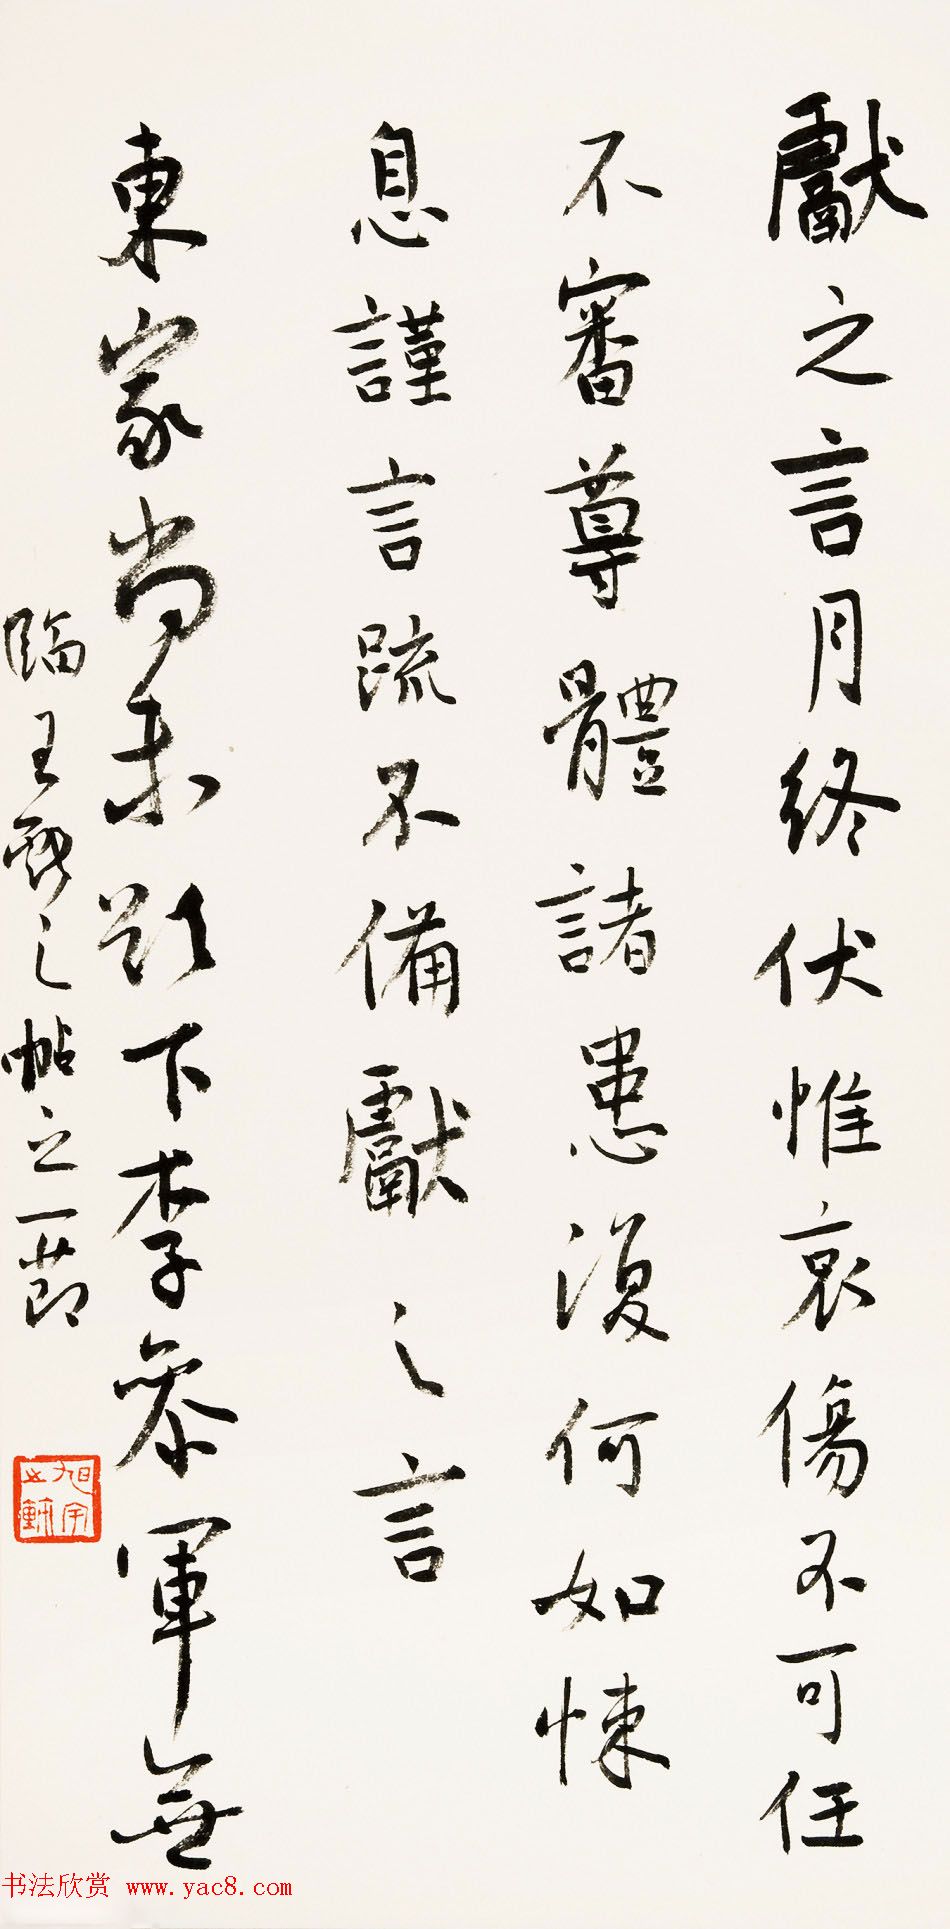 獻之言月終伏惟哀傷不可任
不審尊體諸患復何如悚
息謹言疏不備獻之言
東家尚未 下李參軍無
臨王獻之帖之一節
旭宇
书法欣赏 www.yac8.com